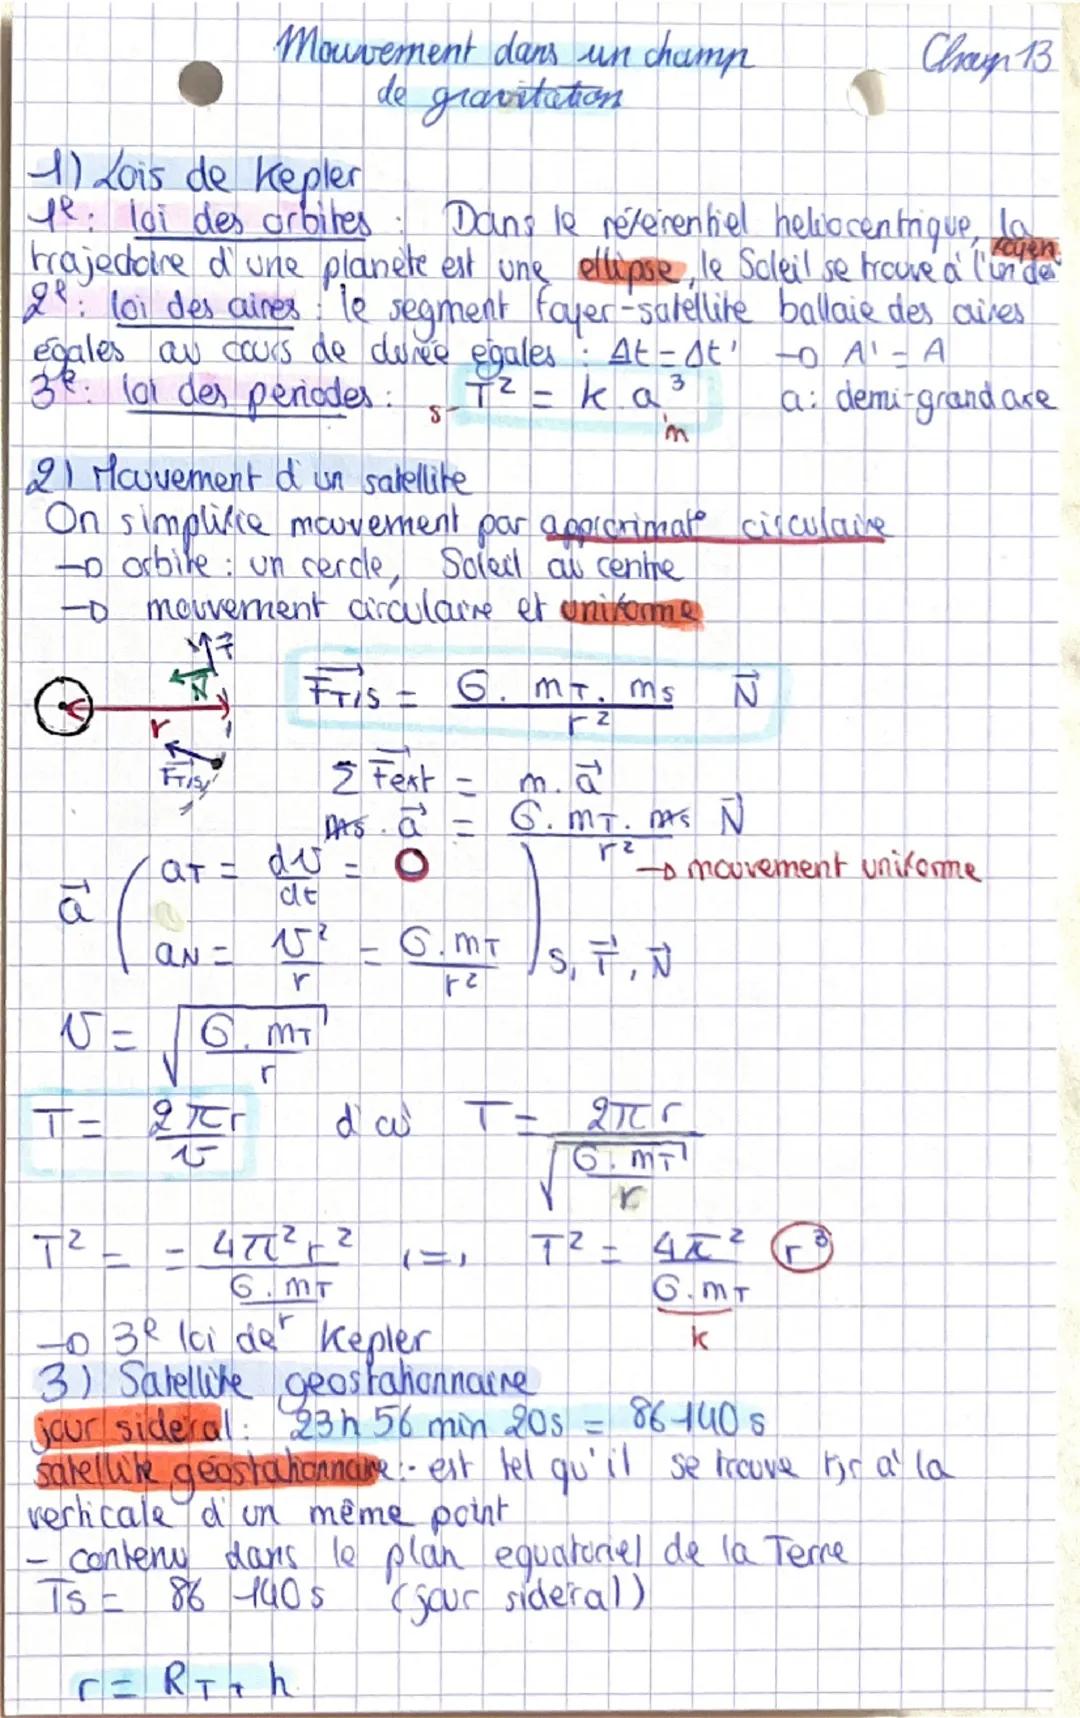 Mouvement dans un champ
de gravitation
Chap 13
1) Lois de Kepler
1e : loi des orbites : Dans le référentiel heliocentrique, la
trajectoire d'une planète est une ellipse, le Soleil se trouve à l'un des foyen
2e : loi des aires : le segment foyer-satellite ballaie des aires
égales au cours de durée égales : Δt = Δt' → A' = A
3e : loi des périodes : T² = k a³ a : demi-grand axe
s m
2) Mouvement d'un satellite
On simplifie mouvement par approximat° circulaire
→ orbite : un cercle, Soleil au centre
→ mouvement circulaire et uniforme
T⃗
N⃗
r
F⃗T/S
F⃗T/S = G. mT. mS / r² N⃗
Σ F⃗ext = m. a⃗
mS . a⃗ = G. mT. mS / r² N⃗
a⃗ ( aT = dv/dt = 0 → mouvement uniforme
aN = v²/r = G.mT/r² ) S, T⃗, N⃗
v = √(G. mT / r)
T = 2πr / v d'où T = 2πr / √(G. mT / r)
T² = = 4π² r² / (G. mT / r) (=) T² = 4π² / G.mT r³
k
→ 3e loi de Kepler
3) Satellite géostationnaire
jour sidéral : 23h 56 min 20s = 86 140 s
satellite géostationnaire : - est tel qu'il se trouve tjr à la
verticale d'un même point
- contenu dans le plan equatoriel de la Terre
Ts = 86 140 s (jour sidéral)
r = RT + h